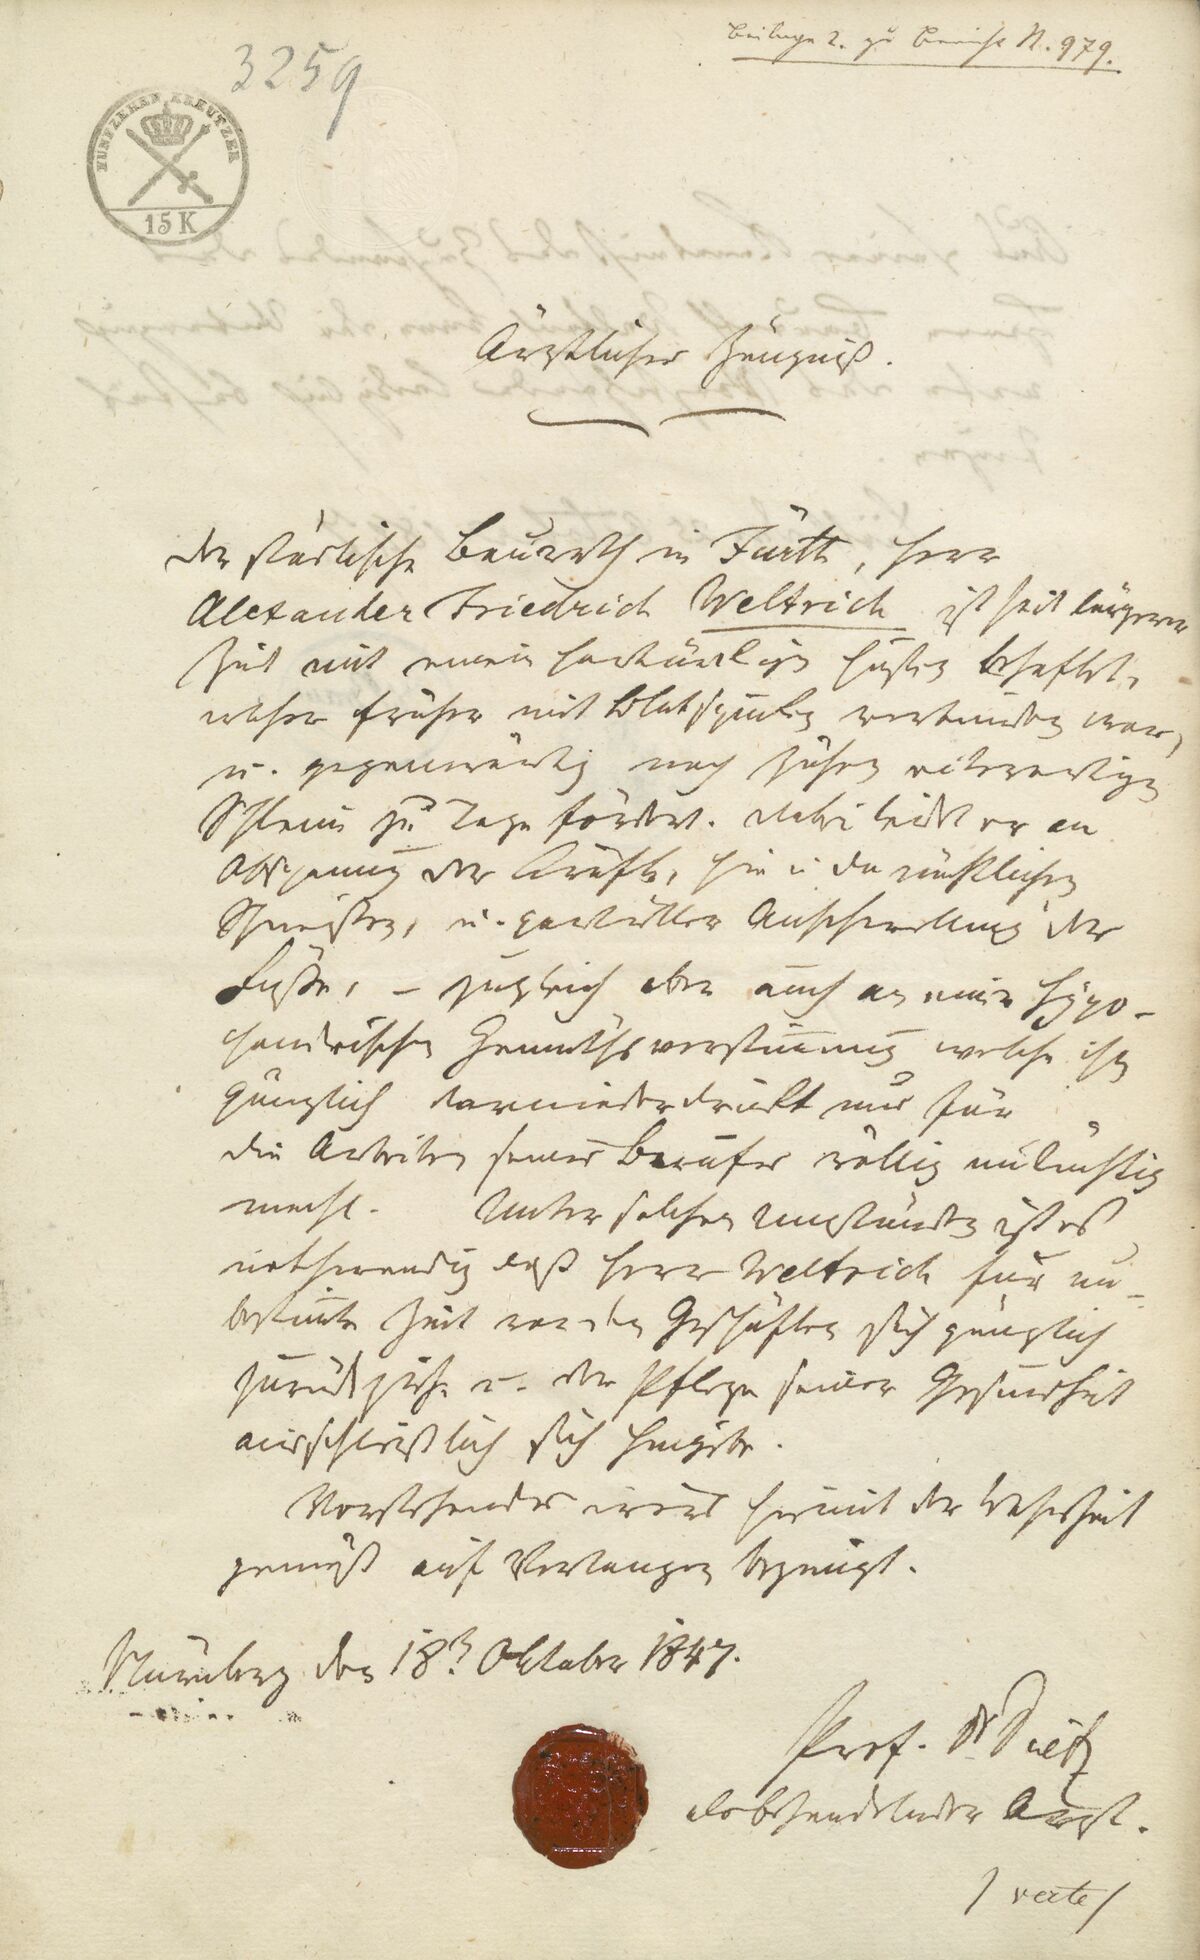 Beilage 2. zu Bericht N. 979.
3259
FÜNFZEHEN KREUTZER
15 K
Ärztliches Zeugniß.
Der städtische Baurath in Fürth, Herr
Alexander Friedrich Weltrich ist seit längerer
Zeit mit einem hartnäckigen Husten behaftet,
welcher früher mit Blutspucken verbunden war,
u. gegenwärtig noch zähen eiterartigen
Schleim zu Tage fördert. Dabei leidet er an
Abspannung der Kräfte, hie u. da nächtlichen
Schweißen, u. partieller Anschwellung der
Füße, – zugleich aber auch an einer hypo-
chondrischen Gemüthsverstimmung welche ihn
gänzlich darniederdrückt und für
die Arbeiten seines Berufes völlig untüchtig
macht. Unter solchen Umständen ist es
nothwendig daß Herr Weltrich für un-
bestimmte Zeit von den Geschäften sich gänzlich
zurückziehe u. der Pflege seiner Gesundheit
ausschließlich sich hingebe.
Vorstehendes wird hiemit der Wahrheit
gemäß auf Verlangen bezeugt.
Nürnberg den 18t. Oktober 1847.
Prof. Dr Dietz
als behandelnder Arzt.
/ verte /